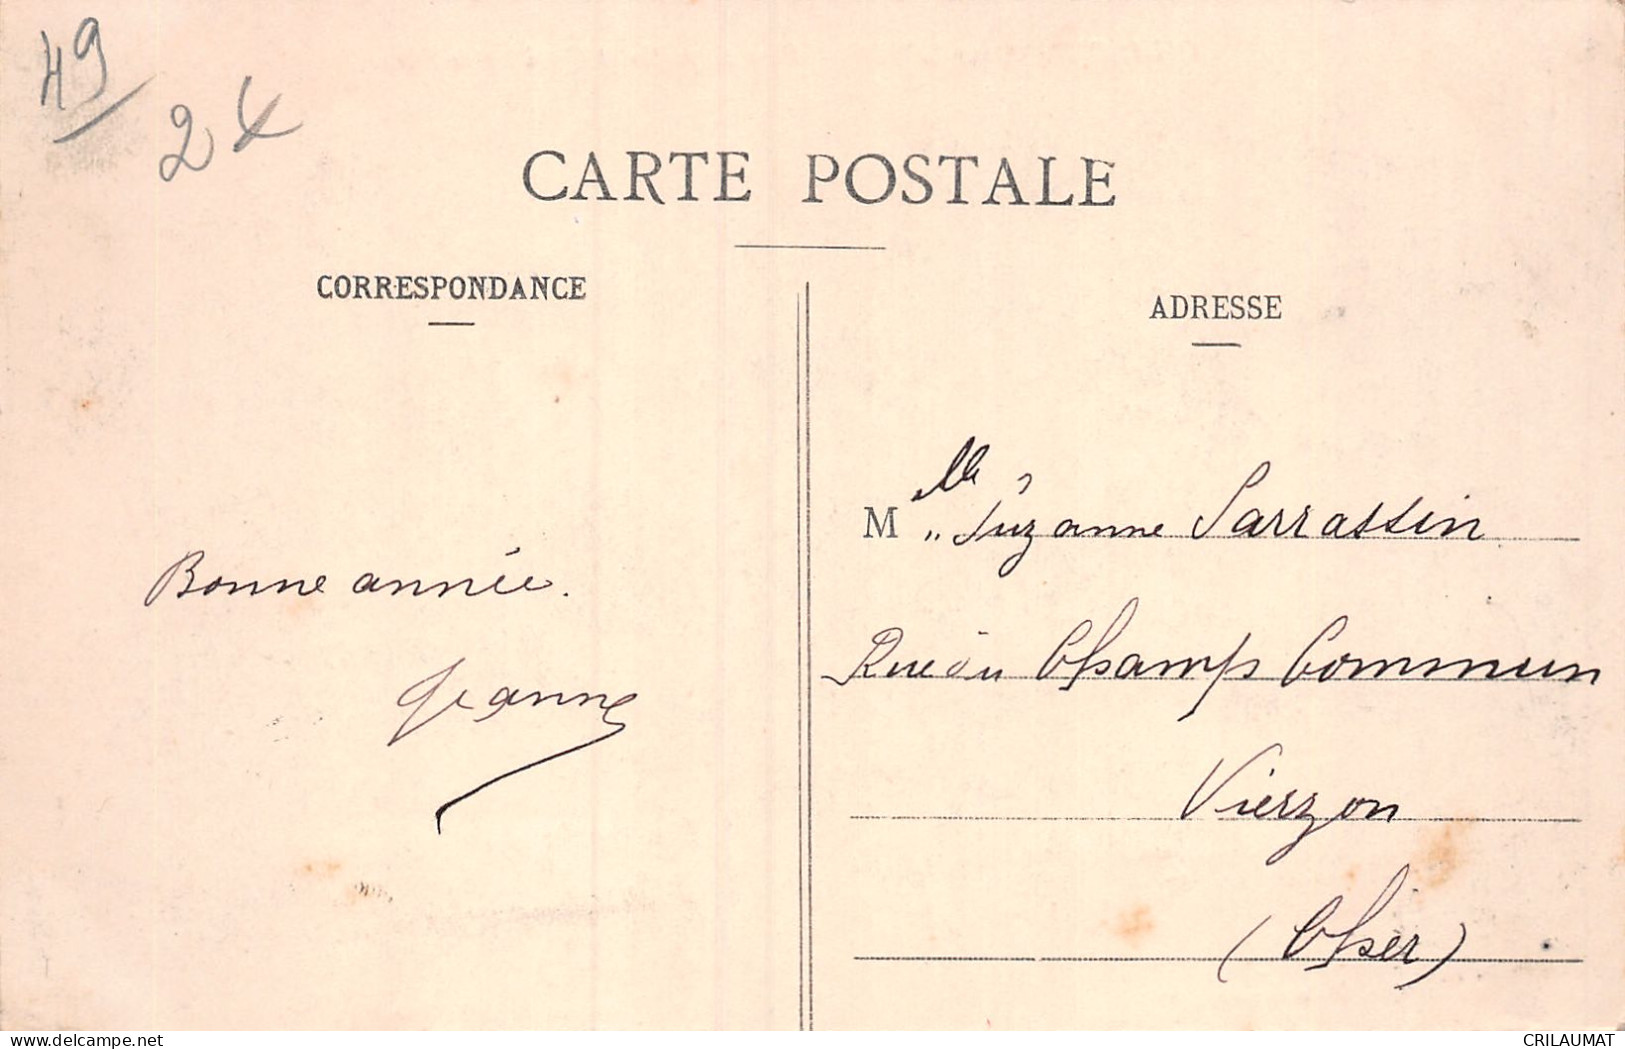 49
24
CARTE POSTALE
CORRESPONDANCE
ADRESSE
Bonne année.
Jeanne
Mlle Suzanne Sarrassin
Rue du Champ Commun
Vierzon
(Cher)
www.delcampe.net
CRILAUMAT